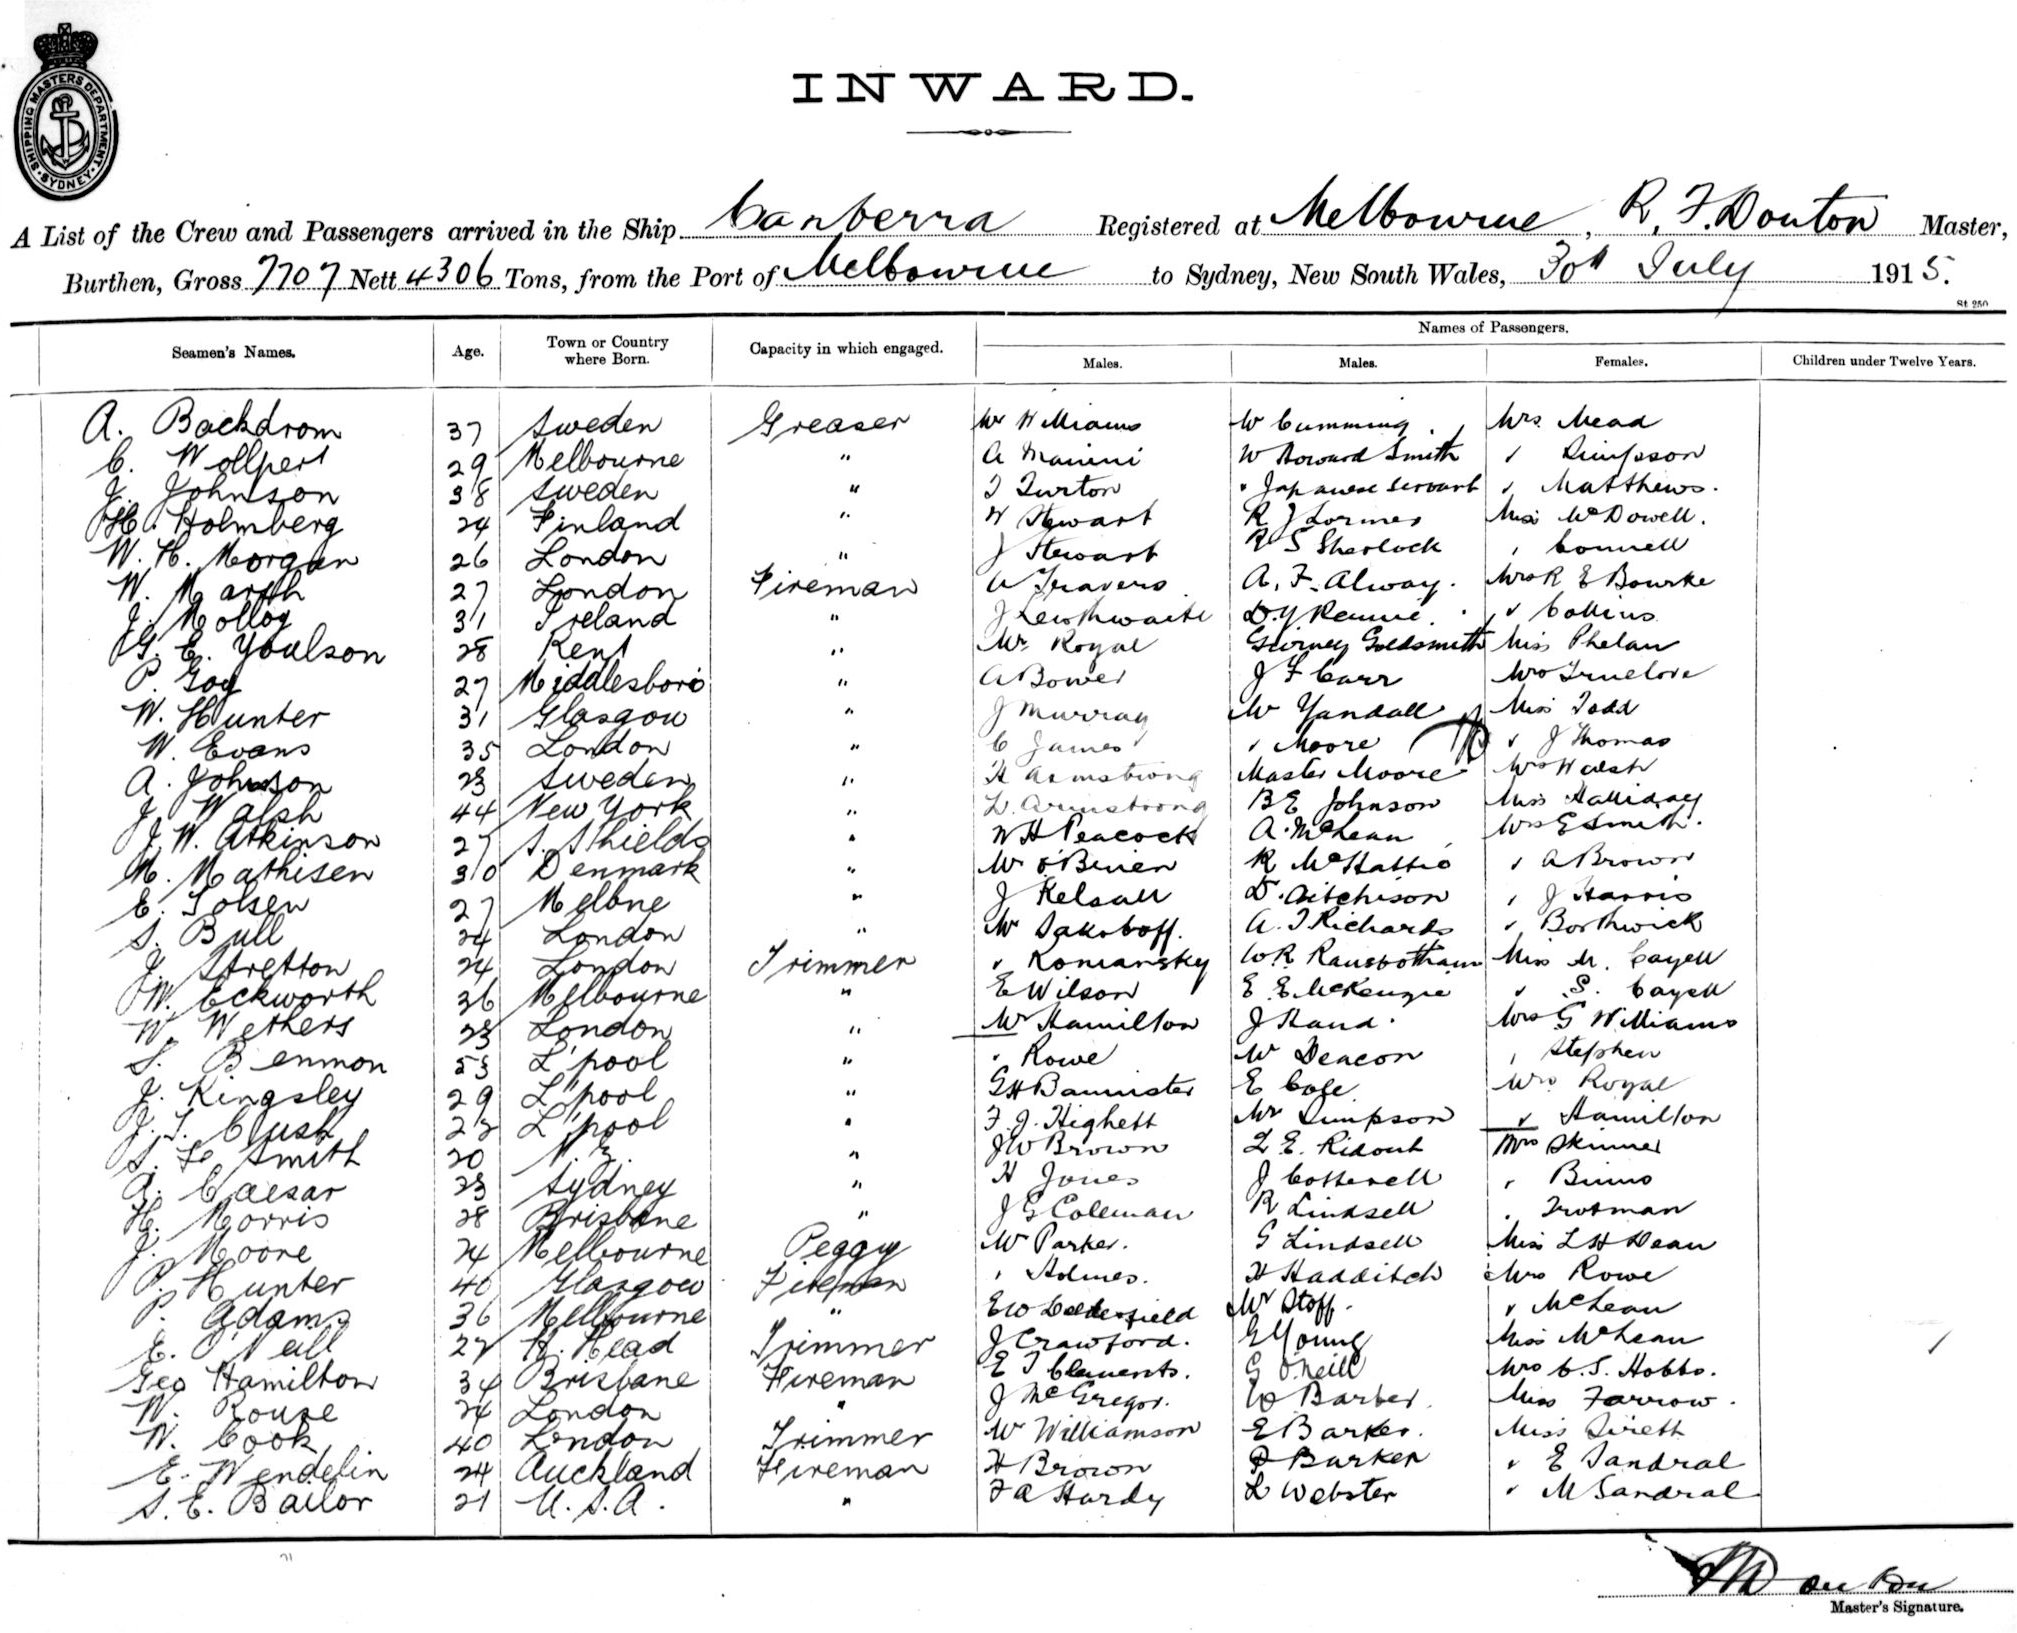 SHIPPING MASTERS DEPARTMENT
SYDNEY
INWARD.
A List of the Crew and Passengers arrived in the Ship Canberra Registered at Melbourne, R. F. Douton Master,
Burthen, Gross 7707 Nett 4306 Tons, from the Port of Melbourne to Sydney, New South Wales, 30th July 1915.
St 250
Names of Passengers.
Seamen's Names. Age. Town or Country where Born. Capacity in which engaged. Males. Males. Females. Children under Twelve Years.
A. Backdrom 37 Sweden Greaser Mr Williams W Cumming Mrs Mead
C. Wollpert 29 Melbourne " A Manini W Howard Smith " Simpson
J. Johnson 38 Sweden " T Turton " Japanese Servant " Matthews.
H. Holmberg 24 Finland " W Stewart R J Lormer Miss McDowell.
W. H. Morgan 26 London " J Stewart R S Sherlock " Connell
W. Marth 27 London Fireman A Travers A. F. Alway. Mrs R E Bourke
J. Molloy 31 Ireland " J Lewthwaite D. Y Rennie. " Collins
G. E. Youlson 28 Kent " Mr Royal Gurney Goldsmith Miss Phelan
P. Goy 27 Middlesboro " A Bower J F Carr Mrs Truelove
W. Hunter 31 Glasgow " J Murray Mr Yandall Miss Todd
W. Evans 35 London " C James " Moore " J Thomas
A. Johnson 23 Sweden " H Armstrong Master Moore Mrs Walsh
J. Walsh 44 New York " L. Armstrong B E Johnson Miss Halliday
J. W. Atkinson 27 S. Shields " W H Peacock A. McLean Mrs E Smith.
M. Mathisen 30 Denmark " Mr O'Brien R McHattie " A Brown
E. Tolsen 27 Melbne " J Kelsall D. Aitchison " J Harris
S. Bull 24 London " Mr Jakoboff. A. T Richards " Borthwick
J. Stretton 24 London Trimmer " Komansky W. R. Rausbotham Miss M. Cayell
W. Eckworth 36 Melbourne " E Wilson E. E. McKenzie " S. Cayell
W. Wethers 23 London " Mr Hamilton J Hand Mrs G Williams
S. Benmon 53 L'pool " " Rowe Mr Deacon " Stephen
J. Kingsley 29 L'pool " G H Bannister E Cole Mrs Royal
J. T. Clush L'pool " F. J. Highett Mr Simpson " Hamilton
Smith 20 N. Z. " J W Brown L E. Ridout Mrs Skinner
A. Caesar 23 Sydney " H Jones J Cotterell " Binns
H. Morris 28 Brisbane " J G Coleman R Lindsell " Trotman
J. Moore 24 Melbourne Peggy Mr Parker. G Lindsell Miss L H Dean
P. Hunter 40 Glasgow Fireman " Holmes. H Hadditch Mrs Rowe
P. Adams 36 Melbourne " E W Mr Stoff. " McLean
E. O'Neill Head Trimmer J Crawford. E Young Miss McLean
Geo Hamilton 34 Brisbane Fireman E T Clements. G O'Neill Mrs C. S. Hobbs.
W. Rouse 24 London " J McGregor. W Barber. Miss Farrow.
W. Cook 40 London Trimmer Mr Williamson E Barker. Miss Sirett
E. Wendelin 24 Auckland Fireman H Brown P Barker " E Sandral
S. E. Bailor 21 U. S. A. " F A Hardy L Webster " M Sandral
Douton
Master's Signature.